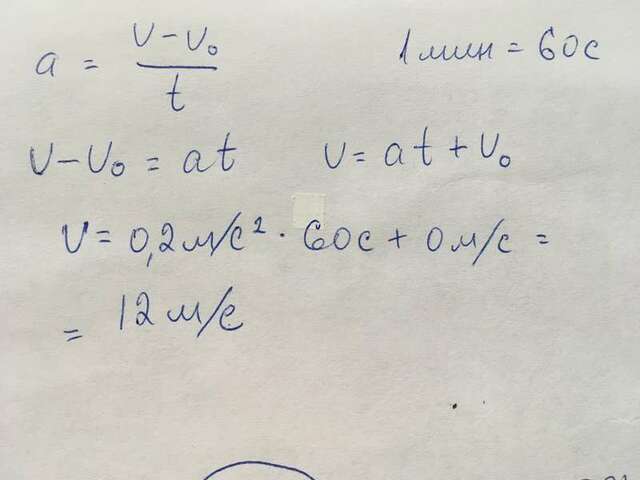 a = (v - v₀) / t    1 мин = 60с
v - v₀ = at    v = at + v₀
v = 0,2 м/с² · 60с + 0 м/с =
= 12 м/с